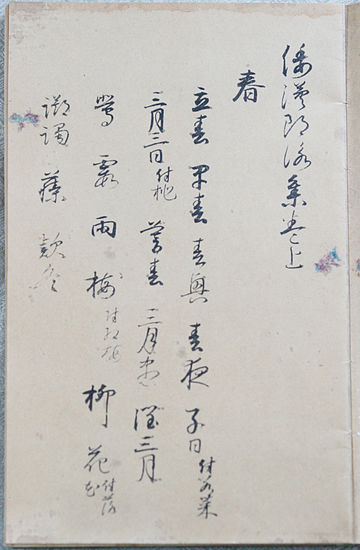 倭漢朗詠集巻上
春
立春 早春 春興 春夜 子日付若菜
三月三日付桃 暮春 三月尽 閏三月
鶯 霞 雨 梅付紅梅 柳 花付落花
躑躅 藤 款冬